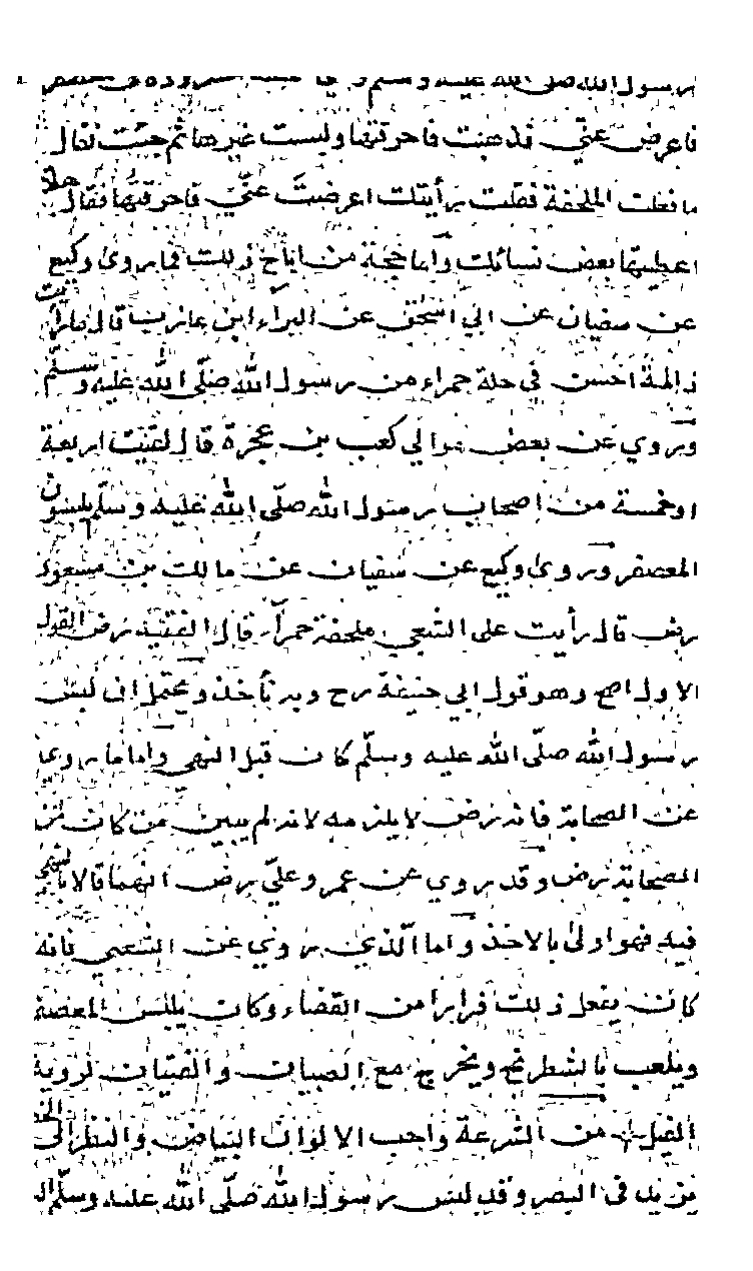 رسول الله صلى الله عليه وسلم
فاعرض عنّي فذهبت فاحرقتها ولبست غيرها ثم جئت فقال
ما فعلت الملحفة فقلت رأيتك اعرضت عنّي فاحرقتها فقال هلا
اعطيتها بعض نسائك واما حجة من اباح ذلك فما روى وكيع
عن سفيان عن ابي اسحق عن البراء ابن عازب قال ما رأيت
ذالمة احسن في حلة حمراء من رسول الله صلّى الله عليه وسلّم
وروي عن بعض موالي كعب بن عجرة قال لقيت اربعة
او خمسة من اصحاب رسول الله صلّى الله عليه وسلّم يلبسون
المعصفر وروى وكيع عن سفيان عن مالك بن مسعود
رض قال رأيت على الشعبي ملحفة حمرآء قال الفقيه رض القول
الاول اصح وهو قول ابي حنيفة رح وبه نأخذ ويحتمل ان لبس
رسول الله صلّى الله عليه وسلّم كان قبل النهي واما ما روى
عن الصحابة فانه رض لا يلزمه لانه لم يبين من كان من
الصحابة رض وقد روي عن عمر وعليّ رض انهما قالا بالنهي
فيه فهو اولى بالاخذ واما الّذي روي عن الشعبي فانه
كان يفعل ذلك فرارا من القضاء وكان يلبس المعصفر
ويلعب بالشطرنج ويخرج مع الصبيان والفتيان لروية
الفيل من الشرعة واحب الالوان البياض والنظر الى
يزيد في البصر وقد لبس رسول الله صلّى الله عليه وسلّم